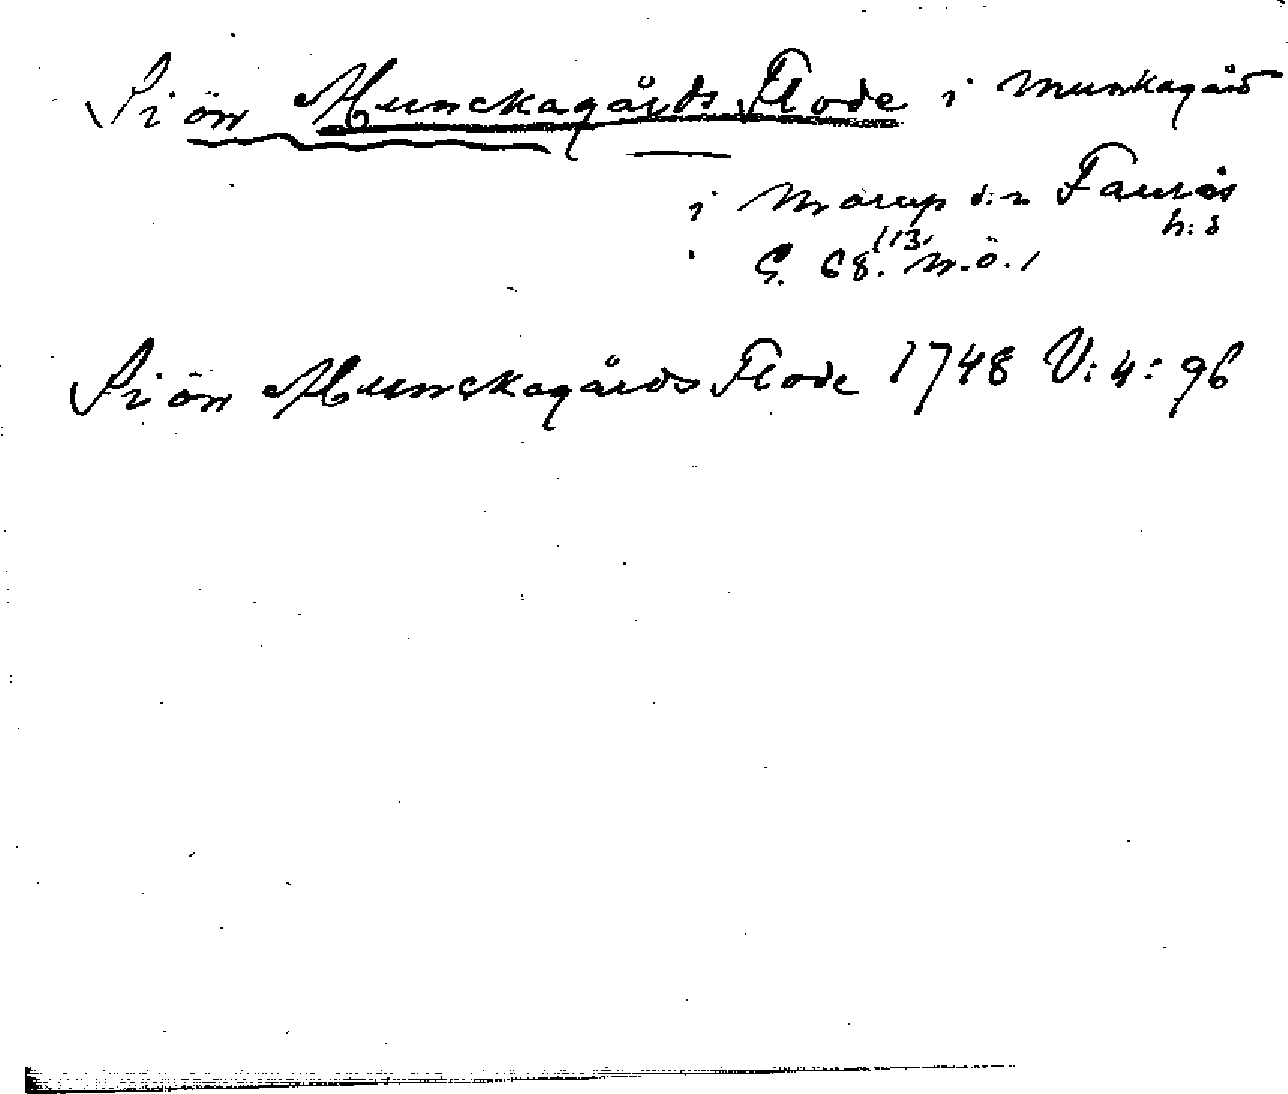 Siön Munckagårds Flode i Munkagård
i Morup s:n Faurås
h:d
113,
S. 68. m.ö.,
Siön Munckagårds Flode 1748 V:4:96